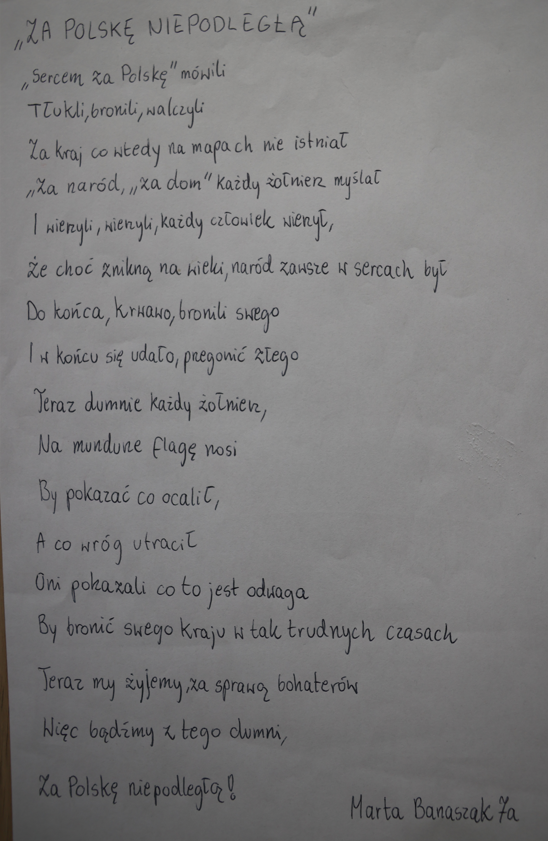 „ZA POLSKĘ NIEPODLEGŁĄ"
„Sercem za Polskę" mówili
Tłukli, bronili, walczyli
Za kraj co wtedy na mapach nie istniał
„Za naród, „za dom" każdy żołnierz myślał
I wierzyli, wierzyli, każdy człowiek wierzył,
Że choć zniknął na wieki, naród zawsze w sercach był
Do końca, krwawo, bronili swego
I w końcu się udało, przegonić złego
Teraz dumnie każdy żołnierz,
Na mundurze flagę nosi
By pokazać co ocalił,
A co wróg utracił
Oni pokazali co to jest odwaga
By bronić swego kraju w tak trudnych czasach
Teraz my żyjemy, za sprawą bohaterów
Więc bądźmy z tego dumni,
Za Polskę niepodległą!
Marta Banaszak 7a